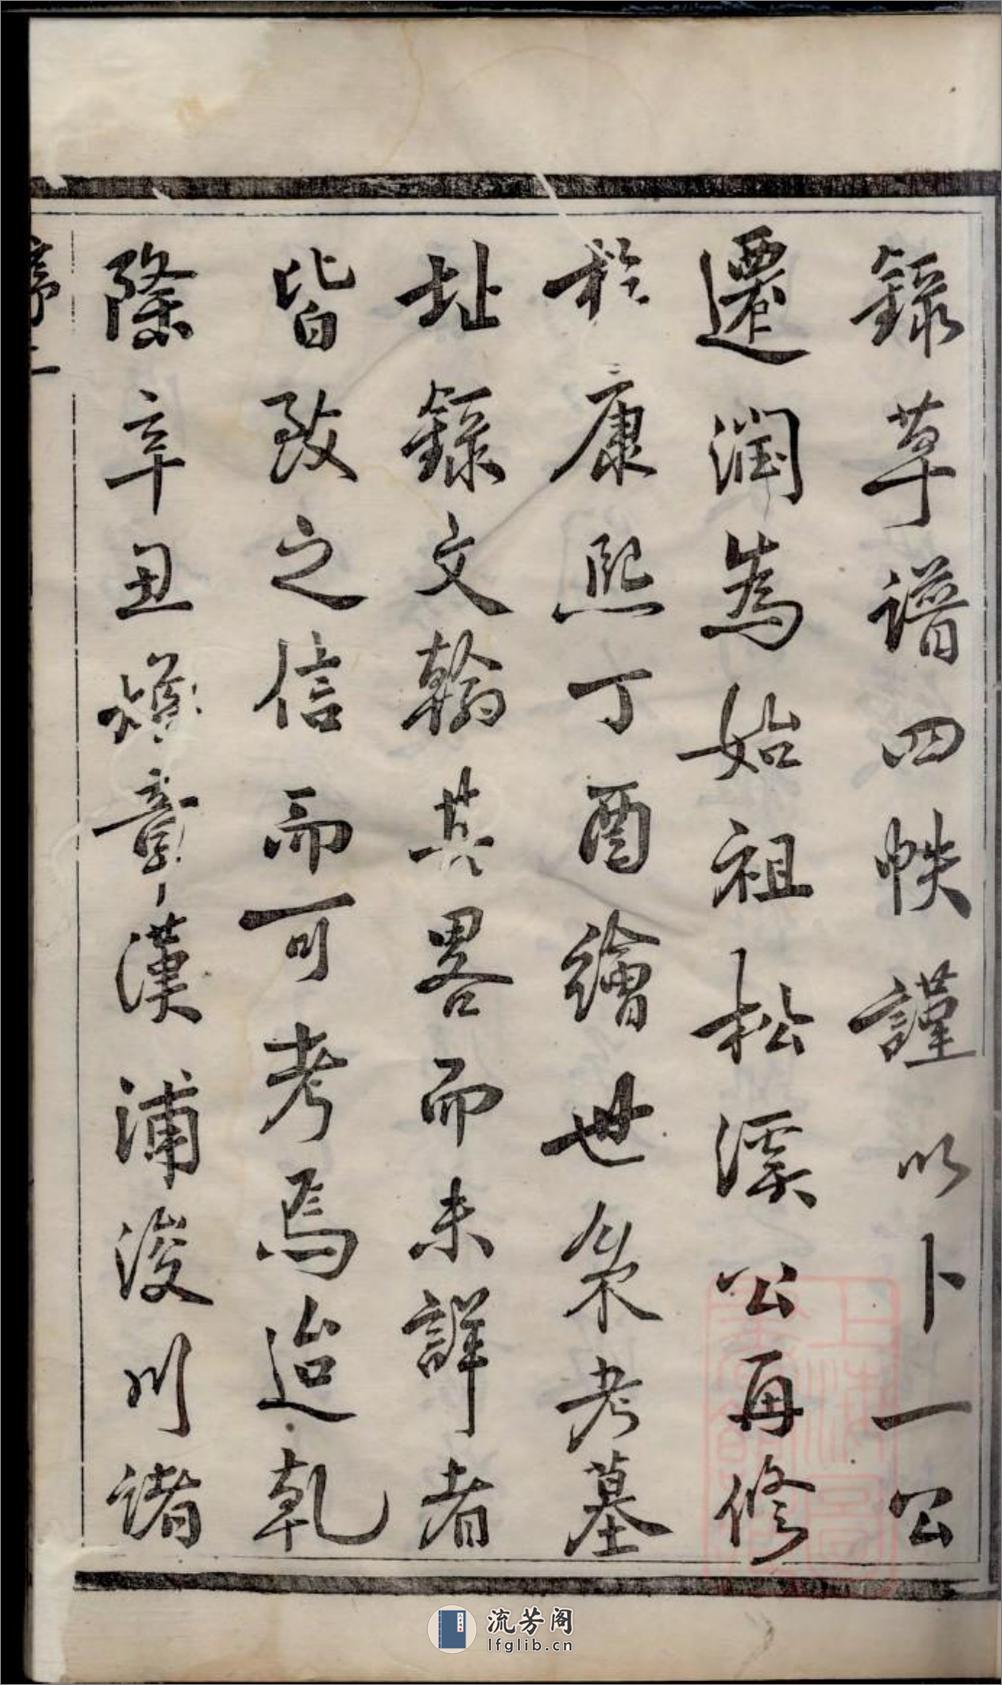 錄草譜四帙謹以卜一公
遷潤為始祖松溪公再修
於康熙丁酉繪世系考墓
址錄文翰英畧而未詳者
皆致之信而可考焉迨乾
隆辛丑煥章漢浦浚川諸
序二
流芳阁
lfglib.cn